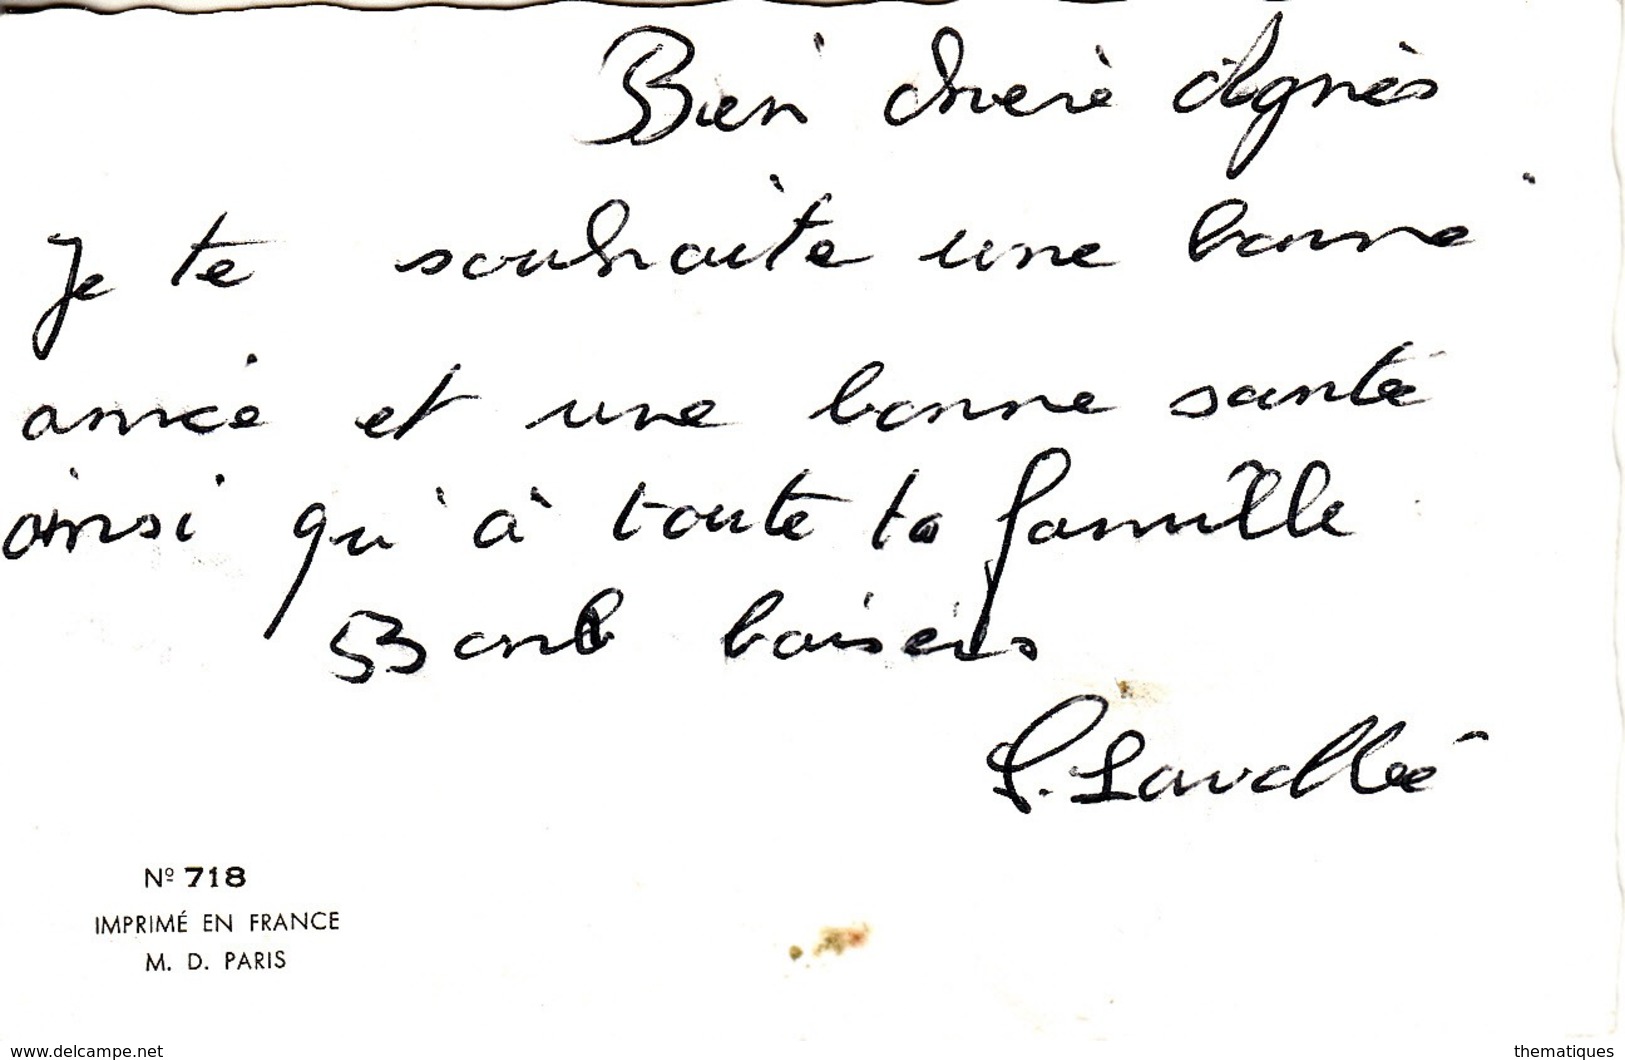 Bien chère Agnès
Je te souhaite une bonne
année et une bonne santé
ainsi qu'à toute ta famille
Bons baisers
L. Lavallée
Nº 718
IMPRIMÉ EN FRANCE
M. D. PARIS
www.delcampe.net
thematiques